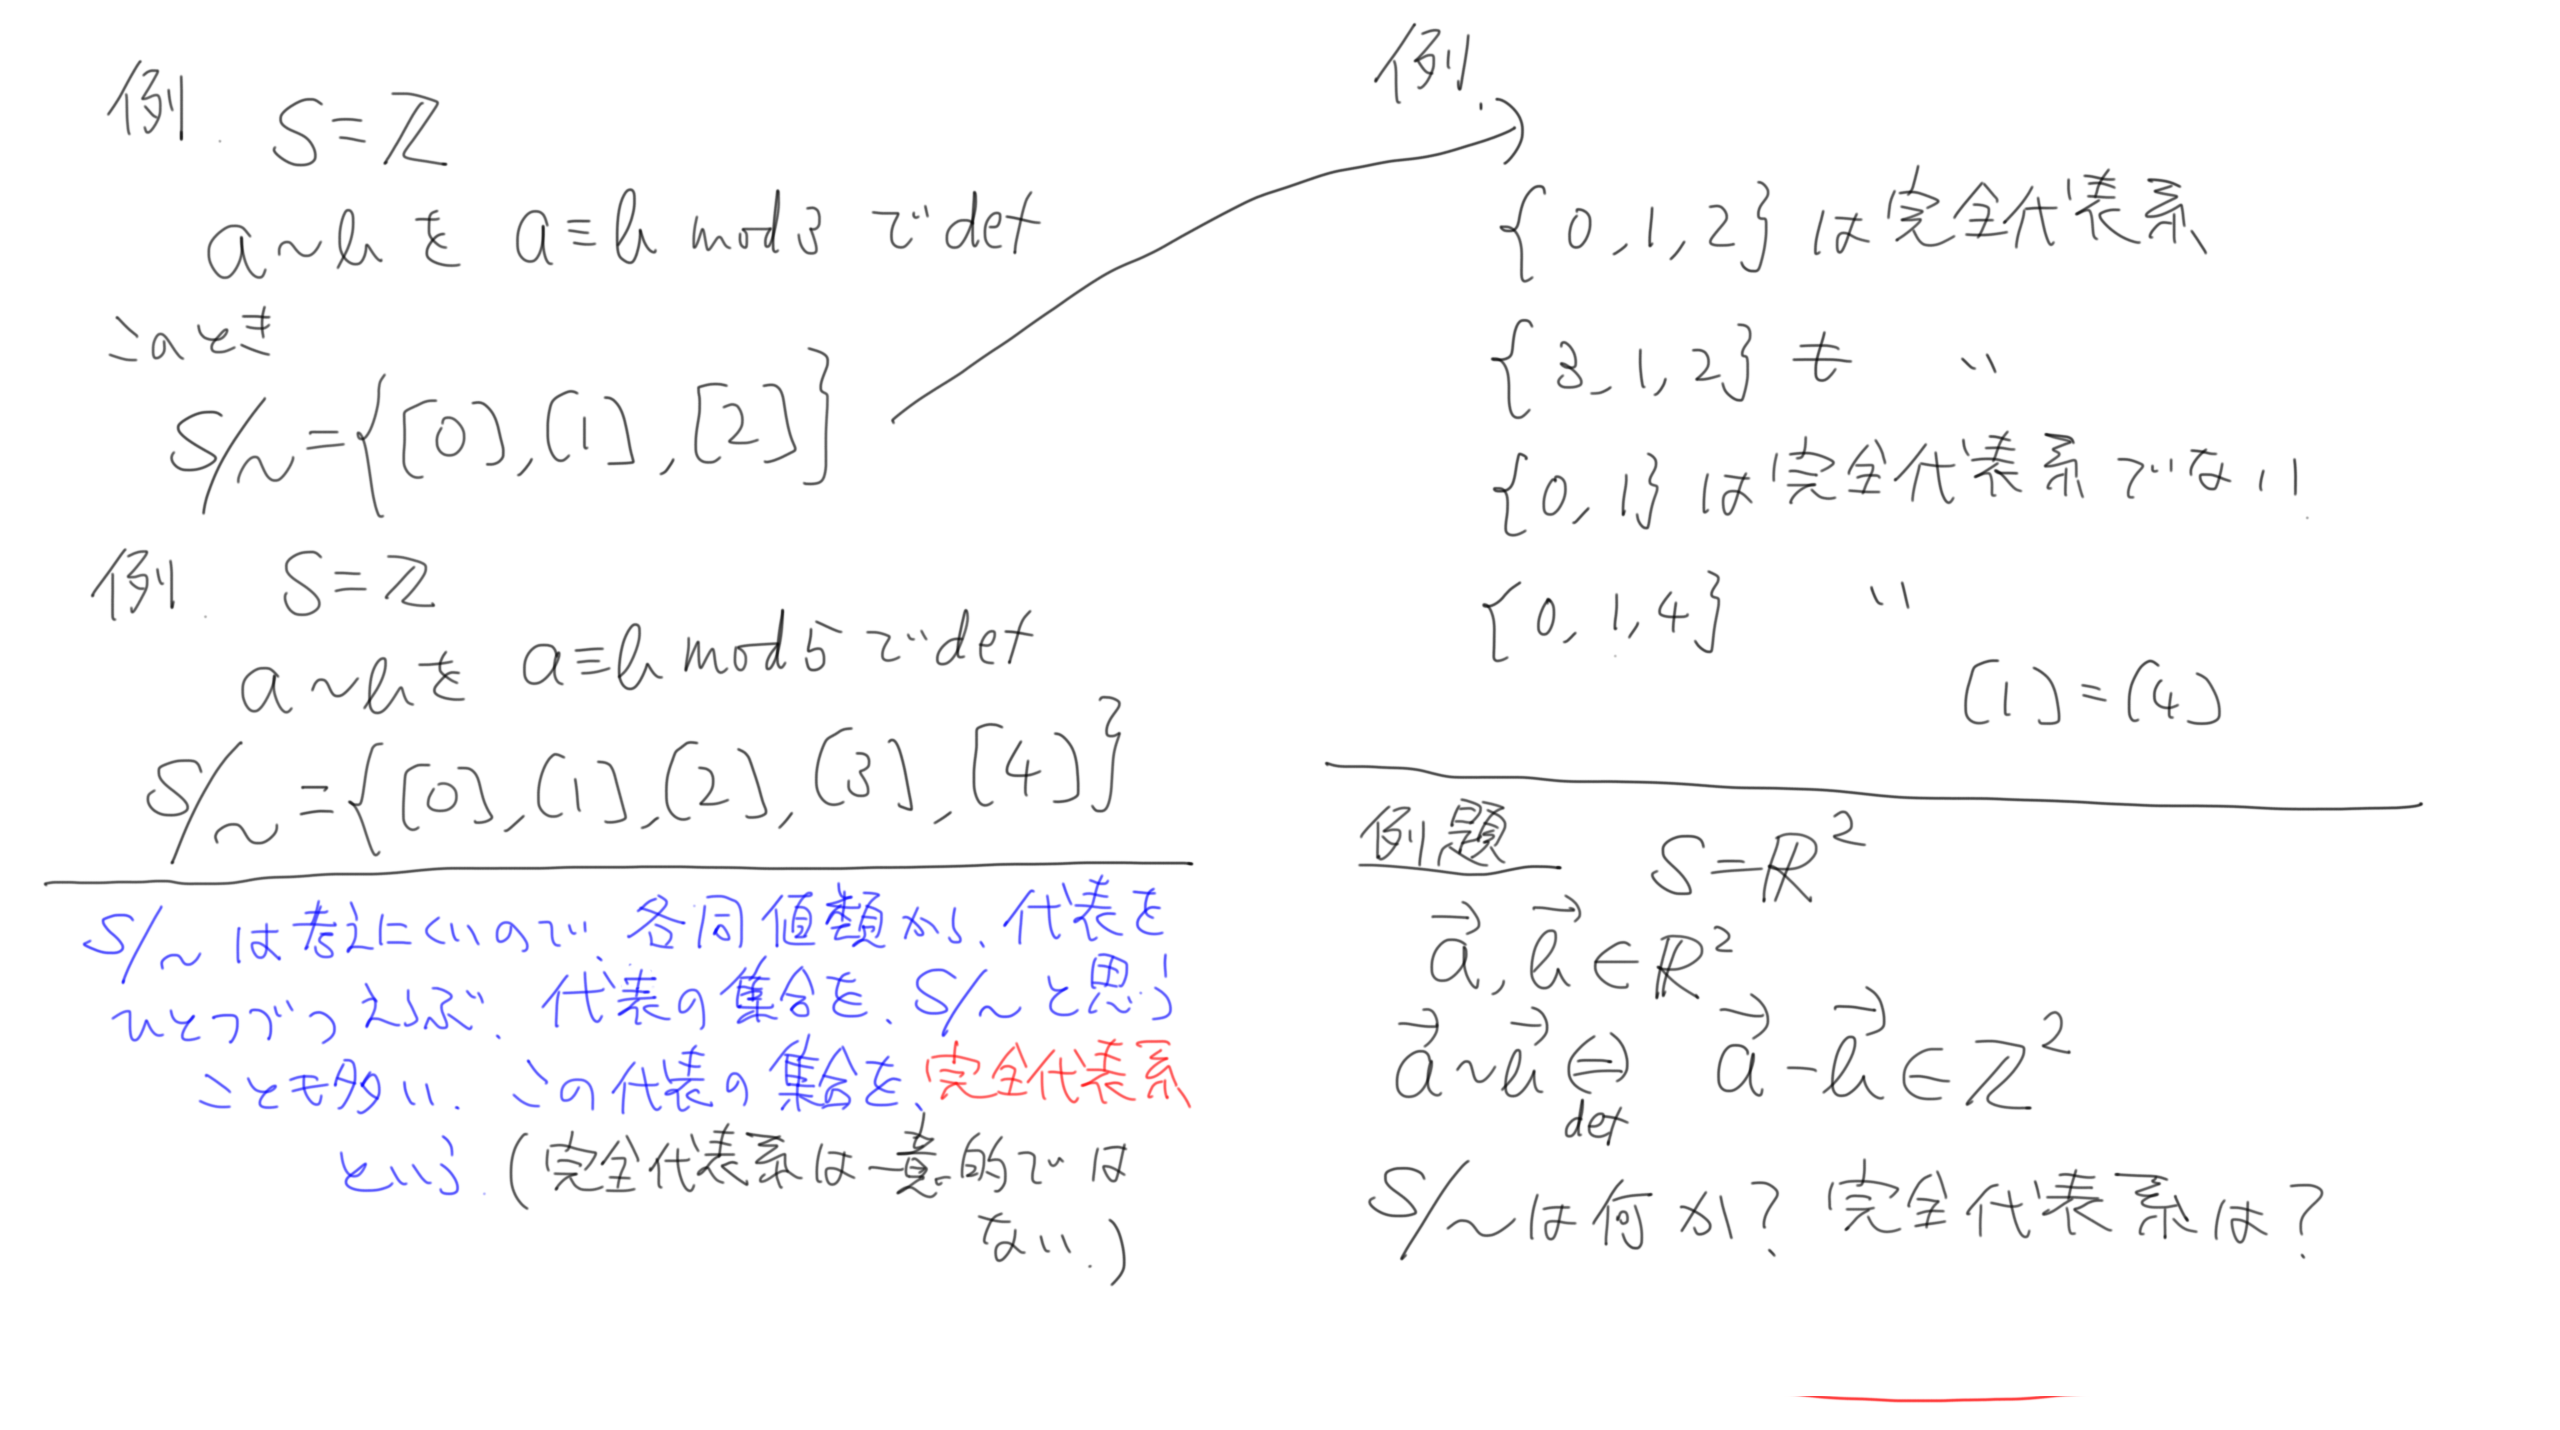 例. S=ℤ
a~bを a≡b mod 3 でdef
このとき
S/~={[0],[1],[2]}
例. S=ℤ
a~bを a≡b mod 5 でdef
S/~={[0],[1],[2],[3],[4]}
S/~は考えにくいので、各同値類から、代表を
ひとつづつえらぶ. 代表の集合を、S/~と思う
ことも多い. この代表の集合を、完全代表系
という. (完全代表系は一意的では
ない.)
例.
{0,1,2}は完全代表系
{3,1,2}も 〃
{0,1}は完全代表系でない.
{0,1,4} 〃
[1]=[4]
例題 S=ℝ²
a⃗,b⃗∈ℝ²
a⃗~b⃗⇔ a⃗-b⃗∈ℤ²
def
S/~は何か? 完全代表系は?